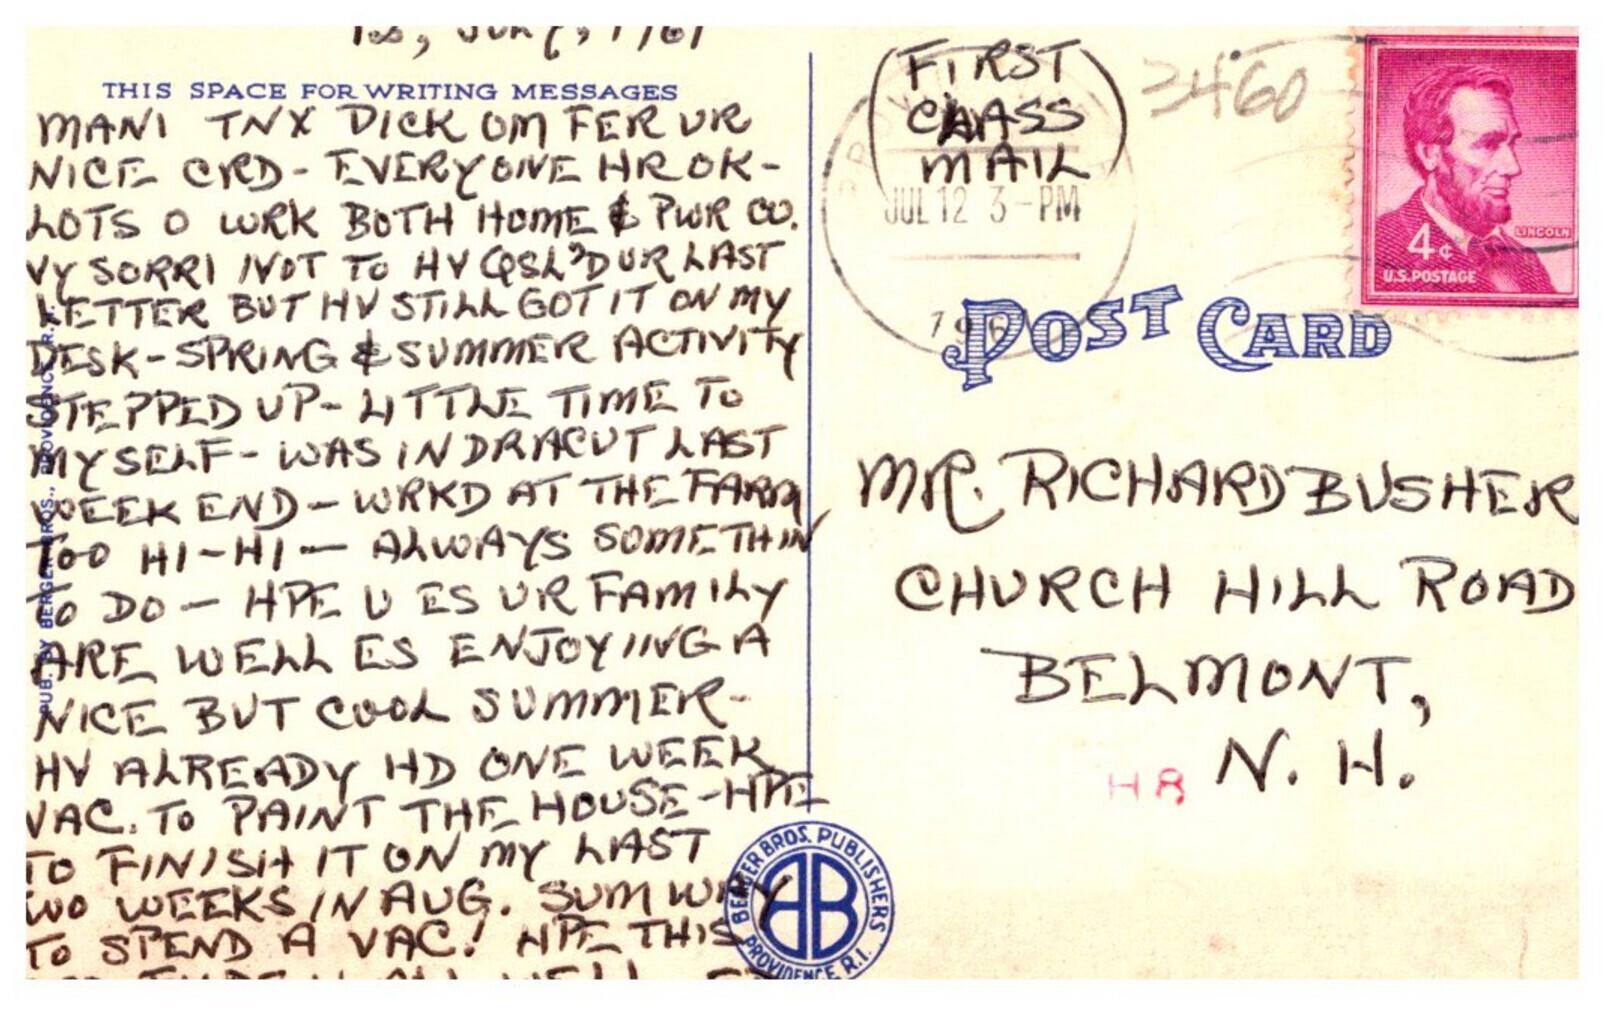 THIS SPACE FOR WRITING MESSAGES
MANI TNX DICK OM FER UR
NICE CRD - EVERYONE HR OK -
LOTS O WRK BOTH HOME & PWR CO.
VY SORRI NOT TO HV QSL'D UR LAST
LETTER BUT HV STILL GOT IT ON MY
DESK - SPRING & SUMMER ACTIVITY
STEPPED UP - LITTLE TIME TO
MYSELF - WAS IN DRACUT LAST
WEEK END - WRKD AT THE FARM
TOO HI - HI - ALWAYS SOMETHIN
TO DO - HPE U ES UR FAMILY
ARE WELL ES ENJOYING A
NICE BUT COOL SUMMER -
HV ALREADY HD ONE WEEK
VAC. TO PAINT THE HOUSE - HPE
TO FINISH IT ON MY LAST
TWO WEEKS IN AUG. SUM WAY
TO SPEND A VAC! HPE THIS
U ALL WELL
PUB. BY BERGER BROS., PROVIDENCE, R.I.
BERGER BROS. PUBLISHERS
BB
PROVIDENCE, R.I.
(FIRST
CLASS
MAIL)
3460
JUL 12 3-PM
LINCOLN
4¢
U.S. POSTAGE
POST CARD
MR. RICHARD BUSHER
CHURCH HILL ROAD
BELMONT,
N. H.
H8